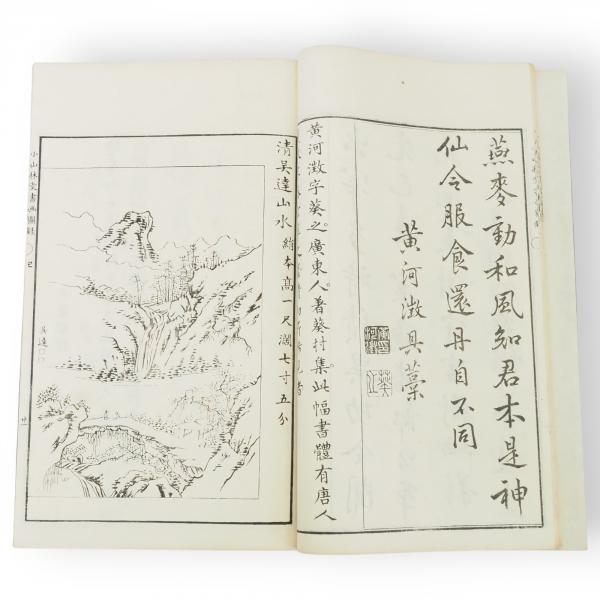 燕麥動和風知君本是神
仙令服食還丹自不同
黃河澂具藁
黃河澂字葵之廣東人著葵村集此幅書體有唐人
清吴達山水 絹本高一尺濶七寸五分
吴達
小山林堂書画圖録